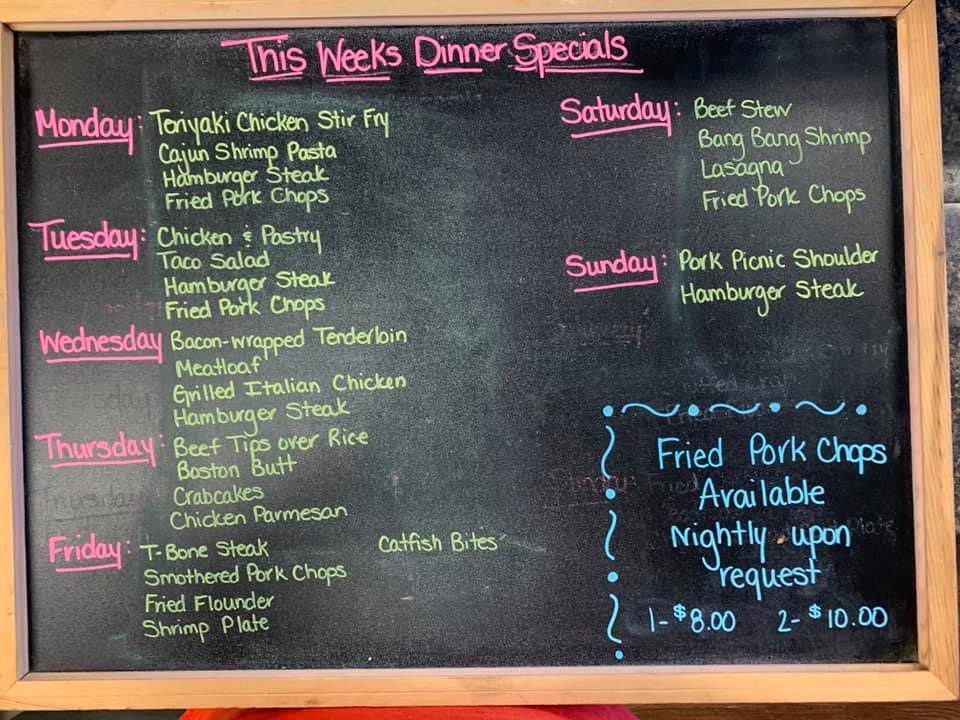 This Weeks Dinner Specials
Monday: Teriyaki Chicken Stir Fry
Cajun Shrimp Pasta
Hamburger Steak
Fried Pork Chops
Tuesday: Chicken & Pastry
Taco Salad
Hamburger Steak
Fried Pork Chops
Wednesday Bacon-wrapped Tenderloin
Meatloaf
Grilled Italian Chicken
Hamburger Steak
Thursday: Beef Tips over Rice
Boston Butt
Crabcakes
Chicken Parmesan
Friday: T-Bone Steak
Smothered Pork Chops
Fried Flounder
Shrimp Plate
Catfish Bites
Saturday: Beef Stew
Bang Bang Shrimp
Lasagna
Fried Pork Chops
Sunday: Pork Picnic Shoulder
Hamburger Steak
Fried Pork Chops
Available
Nightly upon
request
1- $8.00 2- $10.00